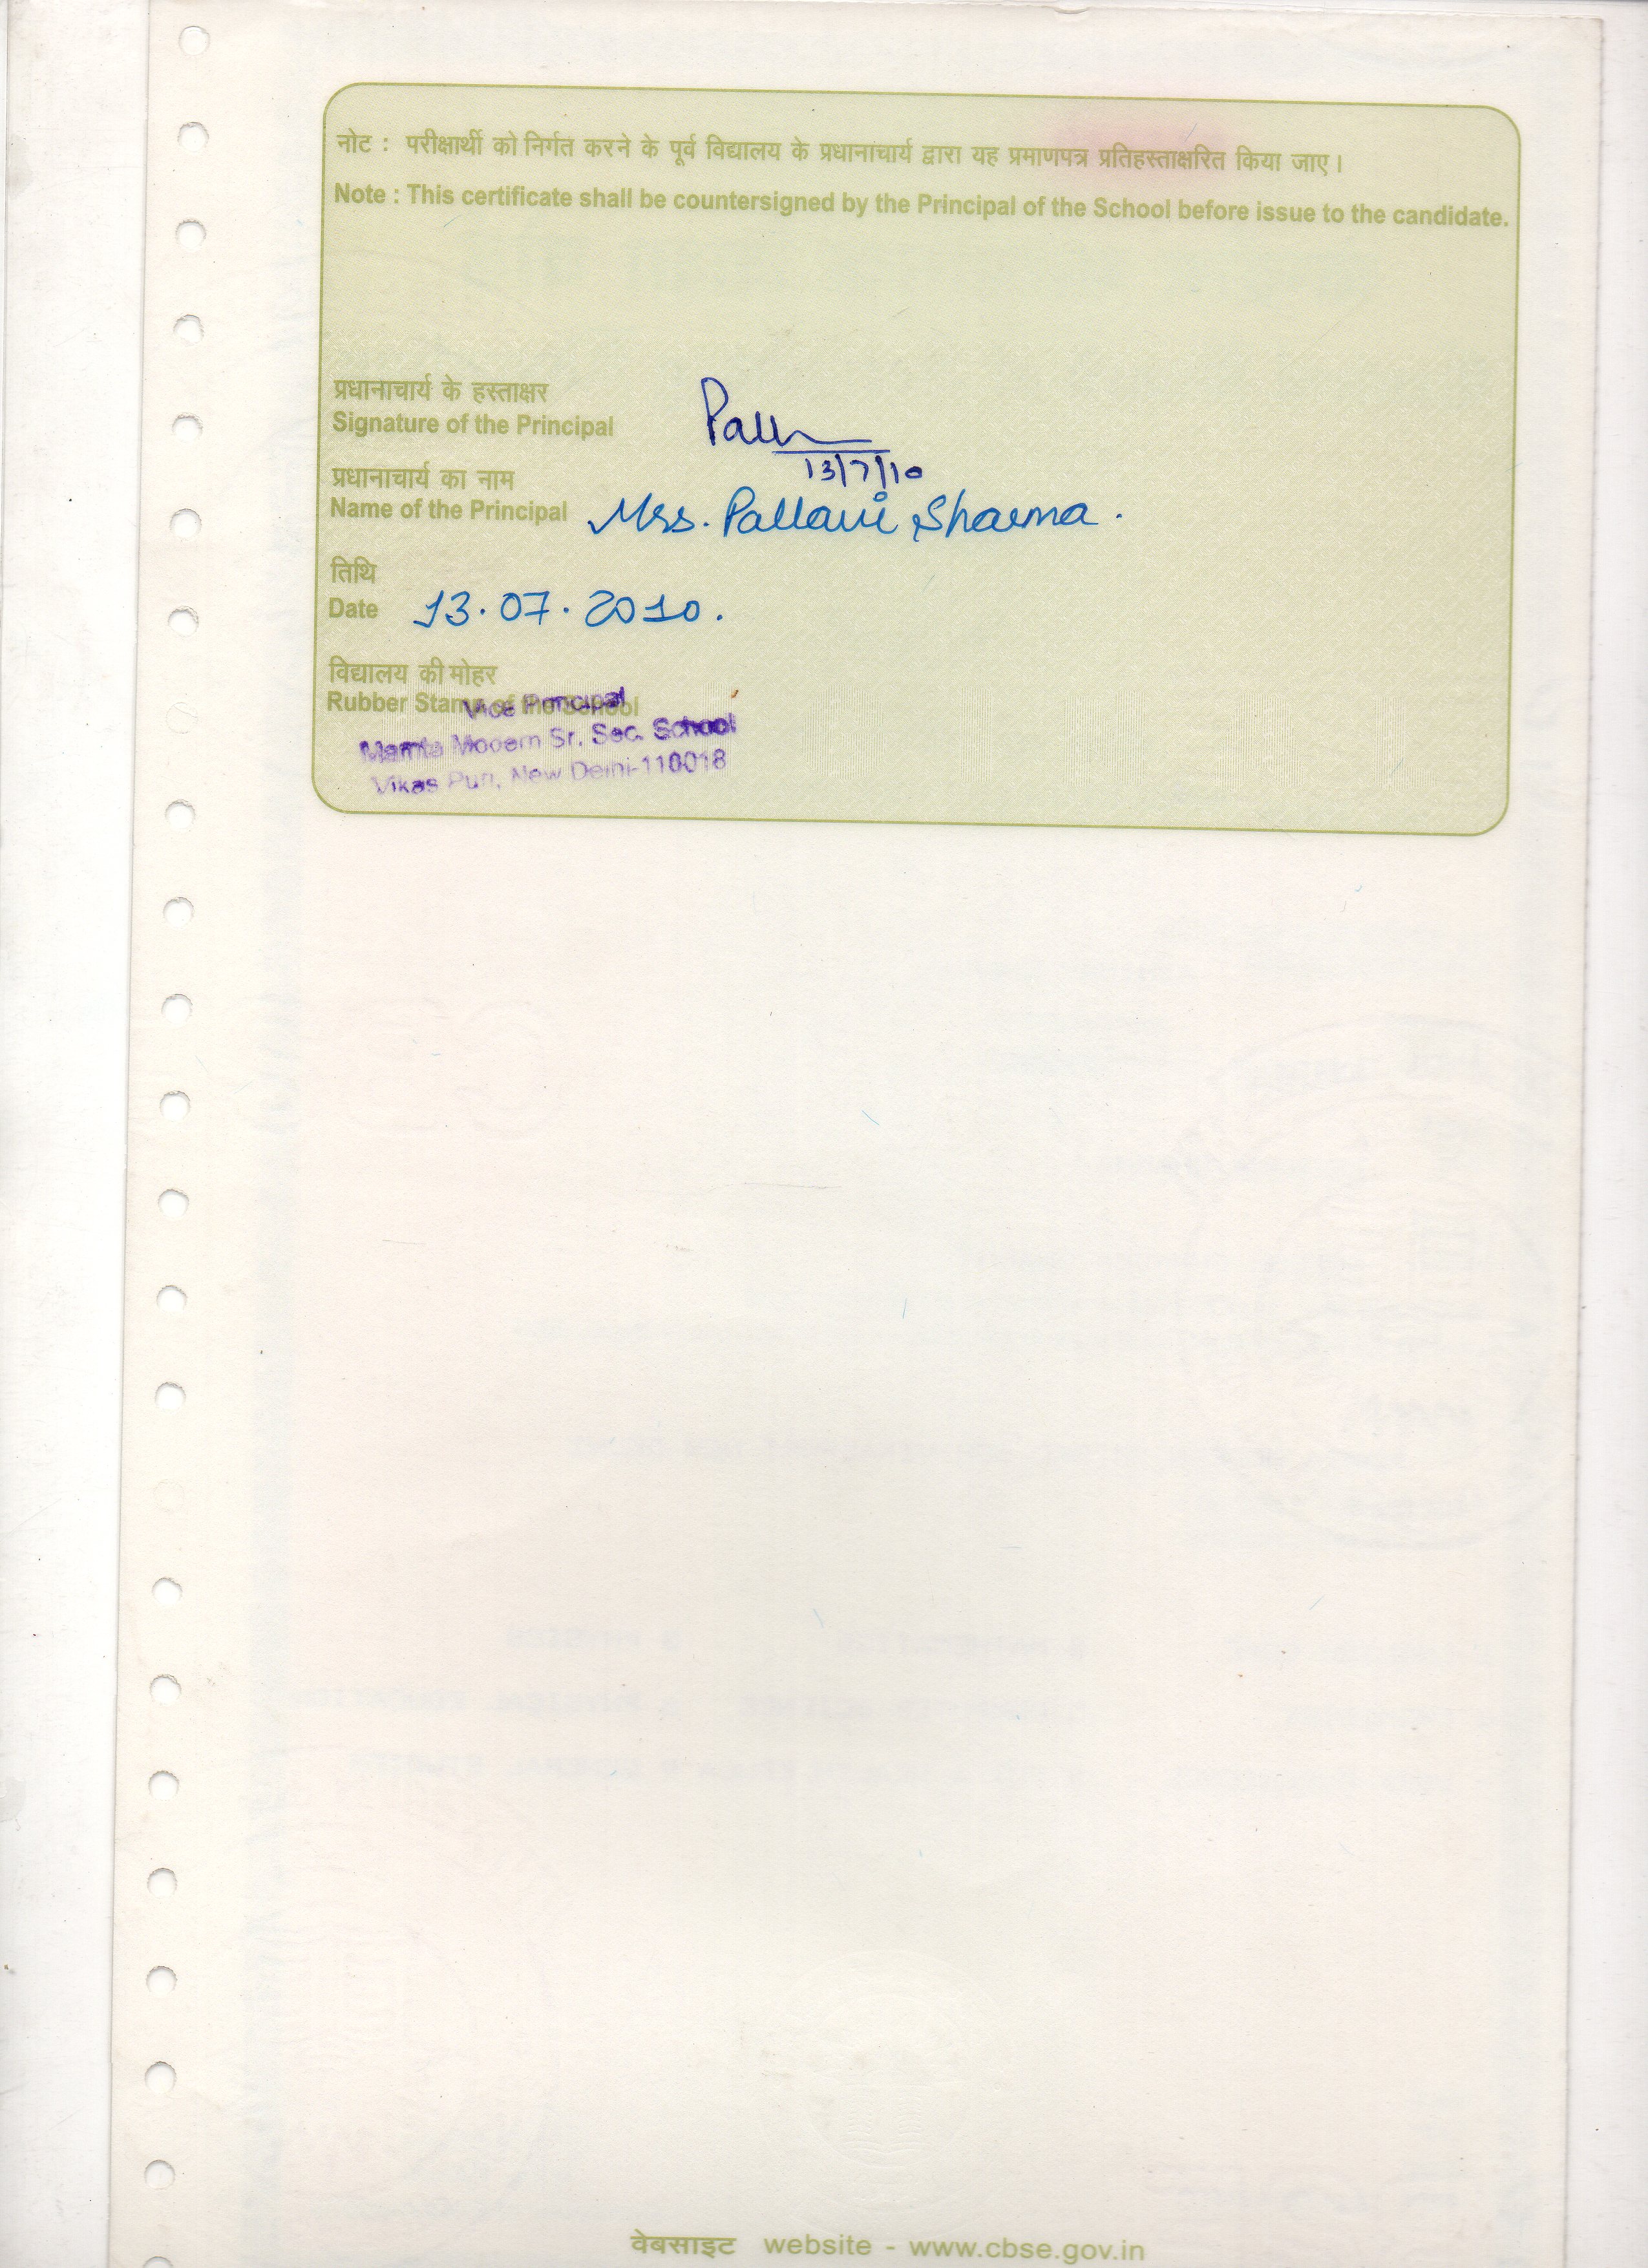 नोट : परीक्षार्थी को निर्गत करने के पूर्व विद्यालय के प्रधानाचार्य द्वारा यह प्रमाणपत्र प्रतिहस्ताक्षरित किया जाए।
Note : This certificate shall be countersigned by the Principal of the School before issue to the candidate.
प्रधानाचार्य के हस्ताक्षर
Signature of the Principal
13/7/10
प्रधानाचार्य का नाम
Name of the Principal Mrs. Pallavi Sharma.
तिथि
Date 13.07.2010.
विद्यालय की मोहर
Rubber Stamp of the School
Vice Principal
Mamta Modern Sr. Sec. School
Vikas Puri, New Delhi-110018
वेबसाइट website - www.cbse.gov.in